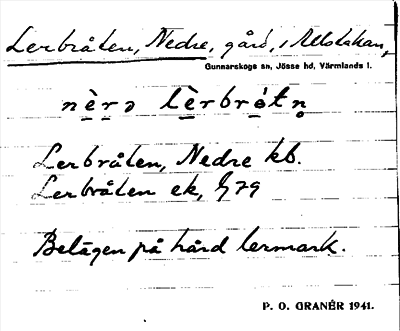 Lerbråten, Nedre, gård, i Allstakan,
Gunnarskogs sn, Jösse hd, Värmlands l.
nèrə lèrbrótn̥
Lerbråten, Nedre kb.
Lerbråten ek, G79
Belägen på hård lermark.
P. O. GRANÉR 1941.